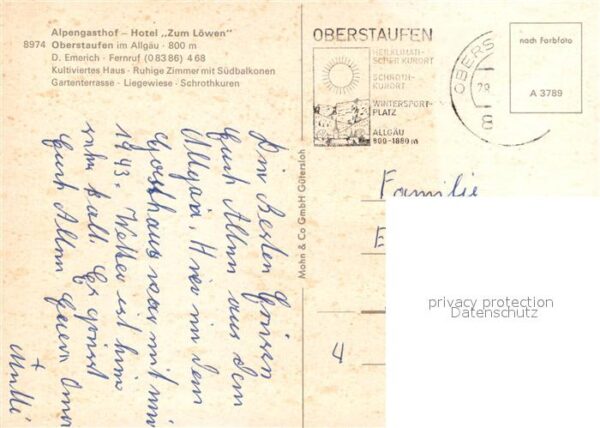 Alpengasthof – Hotel „Zum Löwen"
8974 Oberstaufen im Allgäu · 800 m
D. Emerich · Fernruf (0 83 86) 4 68
Kultiviertes Haus · Ruhige Zimmer mit Südbalkonen
Gartenterrasse · Liegewiese · Schrothkuren
OBERSTAUFEN
HEILKLIMATI-
SCHER KURORT
SCHROTH-
KURORT
WINTERSPORT-
PLATZ
ALLGÄU
800-1880 m
OBERS
29
nach Farbfoto
A 3789
Mohn & Co GmbH Gütersloh
Die Besten Grüsen
Euch Allen aus dem
Allgäu. Hier in dem
Gasthaus war mit mir
1943. Wetter ist hir
sehr kalt. Es grüsst
Euch Allen Euern Oma
+
Mutti
Familie
E
4
privacy protection
Datenschutz